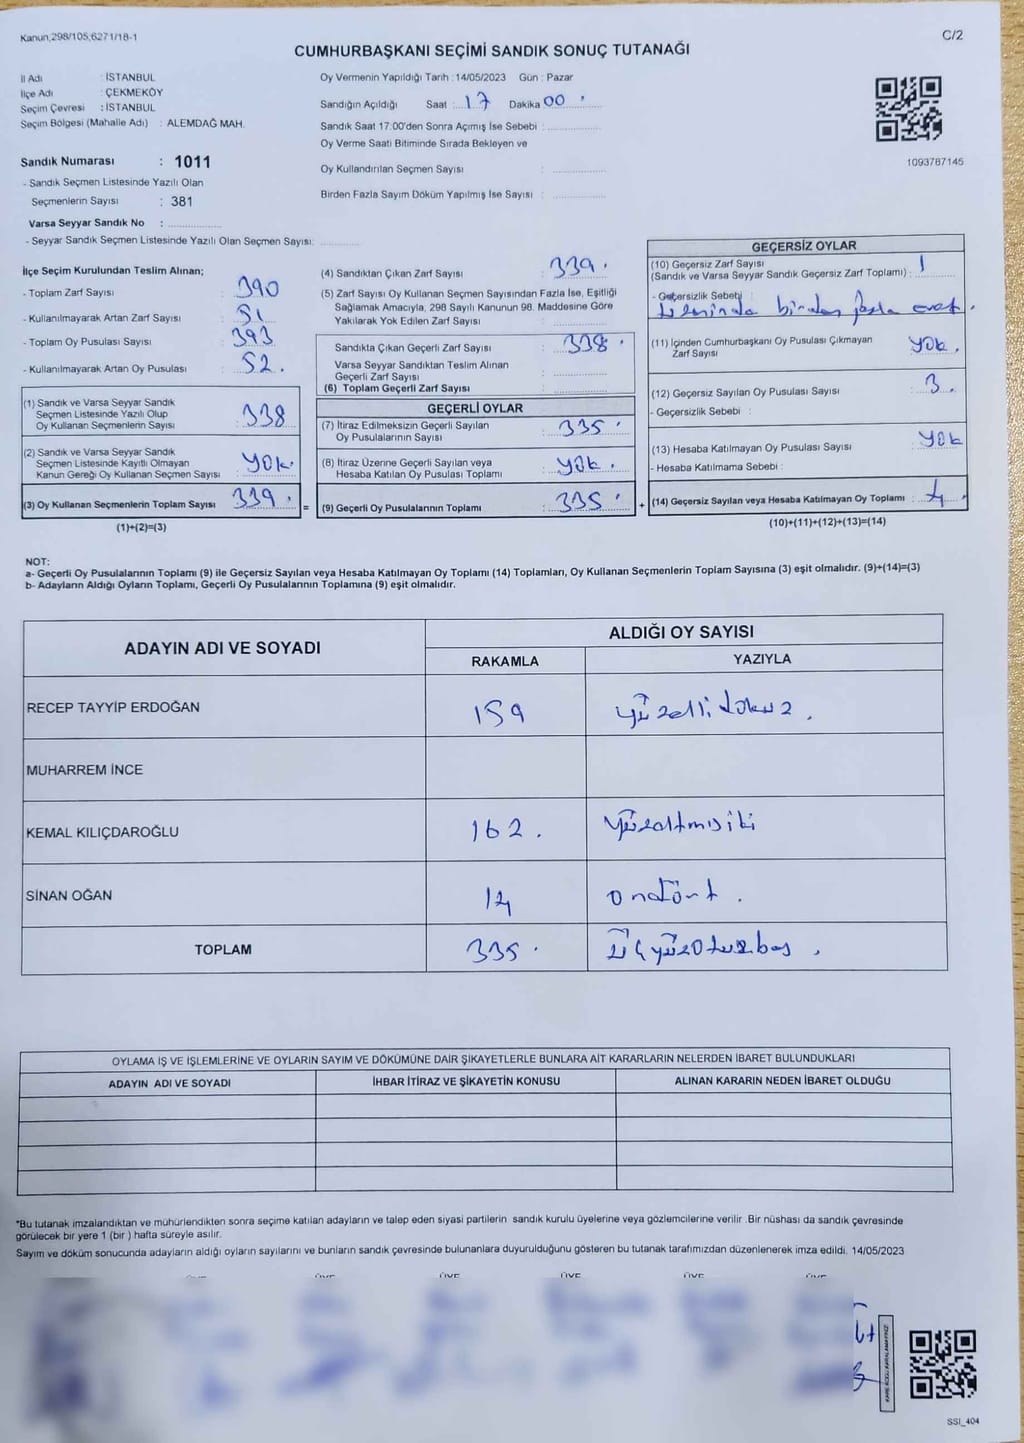 Kanun,298/105,6271/18-1
C/2
CUMHURBAŞKANI SEÇİMİ SANDIK SONUÇ TUTANAĞI
İl Adı : İSTANBUL
İlçe Adı : ÇEKMEKÖY
Seçim Çevresi : İSTANBUL
Seçim Bölgesi (Mahalle Adı) : ALEMDAĞ MAH.
Oy Vermenin Yapıldığı Tarih : 14/05/2023 Gün : Pazar
Sandığın Açıldığı Saat : 17 Dakika 00
Sandık Saat 17:00'den Sonra Açımış İse Sebebi :
Oy Verme Saati Bitiminde Sırada Bekleyen ve
Oy Kullandırılan Seçmen Sayısı :
Birden Fazla Sayım Döküm Yapılmış İse Sayısı :
1093787145
Sandık Numarası : 1011
- Sandık Seçmen Listesinde Yazılı Olan
Seçmenlerin Sayısı : 381
Varsa Seyyar Sandık No :
- Seyyar Sandık Seçmen Listesinde Yazılı Olan Seçmen Sayısı:
İlçe Seçim Kurulundan Teslim Alınan;
- Toplam Zarf Sayısı : 390
- Kullanılmayarak Artan Zarf Sayısı : 51
- Toplam Oy Pusulası Sayısı : 393
- Kullanılmayarak Artan Oy Pusulası : 52.
(1) Sandık ve Varsa Seyyar Sandık
Seçmen Listesinde Yazılı Olup
Oy Kullanan Seçmenlerin Sayısı : 338
(2) Sandık ve Varsa Seyyar Sandık
Seçmen Listesinde Kayıtlı Olmayan
Kanun Gereği Oy Kullanan Seçmen Sayısı : yok.
(3) Oy Kullanan Seçmenlerin Toplam Sayısı : 339. =
(1)+(2)=(3)
(4) Sandıktan Çıkan Zarf Sayısı : 339.
(5) Zarf Sayısı Oy Kullanan Seçmen Sayısından Fazla İse, Eşitliği
Sağlamak Amacıyla, 298 Sayılı Kanunun 98. Maddesine Göre
Yakılarak Yok Edilen Zarf Sayısı :
Sandıkta Çıkan Geçerli Zarf Sayısı : 338.
Varsa Seyyar Sandıktan Teslim Alınan
Geçerli Zarf Sayısı :
(6) Toplam Geçerli Zarf Sayısı :
GEÇERLİ OYLAR
(7) İtiraz Edilmeksizin Geçerli Sayılan
Oy Pusulalarının Sayısı : 335.
(8) İtiraz Üzerine Geçerli Sayılan veya
Hesaba Katılan Oy Pusulası Toplamı : yok.
(9) Geçerli Oy Pusulalarının Toplamı : 335. +
GEÇERSİZ OYLAR
(10) Geçersiz Zarf Sayısı
(Sandık ve Varsa Seyyar Sandık Geçersiz Zarf Toplamı) : 1
- Geçersizlik Sebebi :
birden fazla evet.
(11) İçinden Cumhurbaşkanı Oy Pusulası Çıkmayan
Zarf Sayısı : yok.
(12) Geçersiz Sayılan Oy Pusulası Sayısı : 3.
- Geçersizlik Sebebi :
(13) Hesaba Katılmayan Oy Pusulası Sayısı : yok
- Hesaba Katılmama Sebebi :
(14) Geçersiz Sayılan veya Hesaba Katılmayan Oy Toplamı : 4.
(10)+(11)+(12)+(13)=(14)
NOT:
a- Geçerli Oy Pusulalarının Toplamı (9) ile Geçersiz Sayılan veya Hesaba Katılmayan Oy Toplamı (14) Toplamları, Oy Kullanan Seçmenlerin Toplam Sayısına (3) eşit olmalıdır. (9)+(14)=(3)
b- Adayların Aldığı Oyların Toplamı, Geçerli Oy Pusulalarının Toplamına (9) eşit olmalıdır.
ADAYIN ADI VE SOYADI ALDIĞI OY SAYISI
RAKAMLA YAZIYLA
RECEP TAYYİP ERDOĞAN 159 yüzellidokuz.
MUHARREM İNCE
KEMAL KILIÇDAROĞLU 162. yüzaltmışiki
SİNAN OĞAN 14 ondört.
TOPLAM 335. üçyüzotuzbeş.
OYLAMA İŞ VE İŞLEMLERİNE VE OYLARIN SAYIM VE DÖKÜMÜNE DAİR ŞİKAYETLERLE BUNLARA AİT KARARLARIN NELERDEN İBARET BULUNDUKLARI
ADAYIN ADI VE SOYADI İHBAR İTİRAZ VE ŞİKAYETİN KONUSU ALINAN KARARIN NEDEN İBARET OLDUĞU
*Bu tutanak imzalandıktan ve mühürlendikten sonra seçime katılan adayların ve talep eden siyasi partilerin sandık kurulu üyelerine veya gözlemcilerine verilir .Bir nüshası da sandık çevresinde
görülecek bir yere 1 (bir ) hafta süreyle asılır.
Sayım ve döküm sonucunda adayların aldığı oyların sayılarını ve bunların sandık çevresinde bulunanlara duyurulduğunu gösteren bu tutanak tarafımızdan düzenlenerek imza edildi. 14/05/2023
ÜYE ÜYE ÜYE ÜYE ÜYE
SSI_404